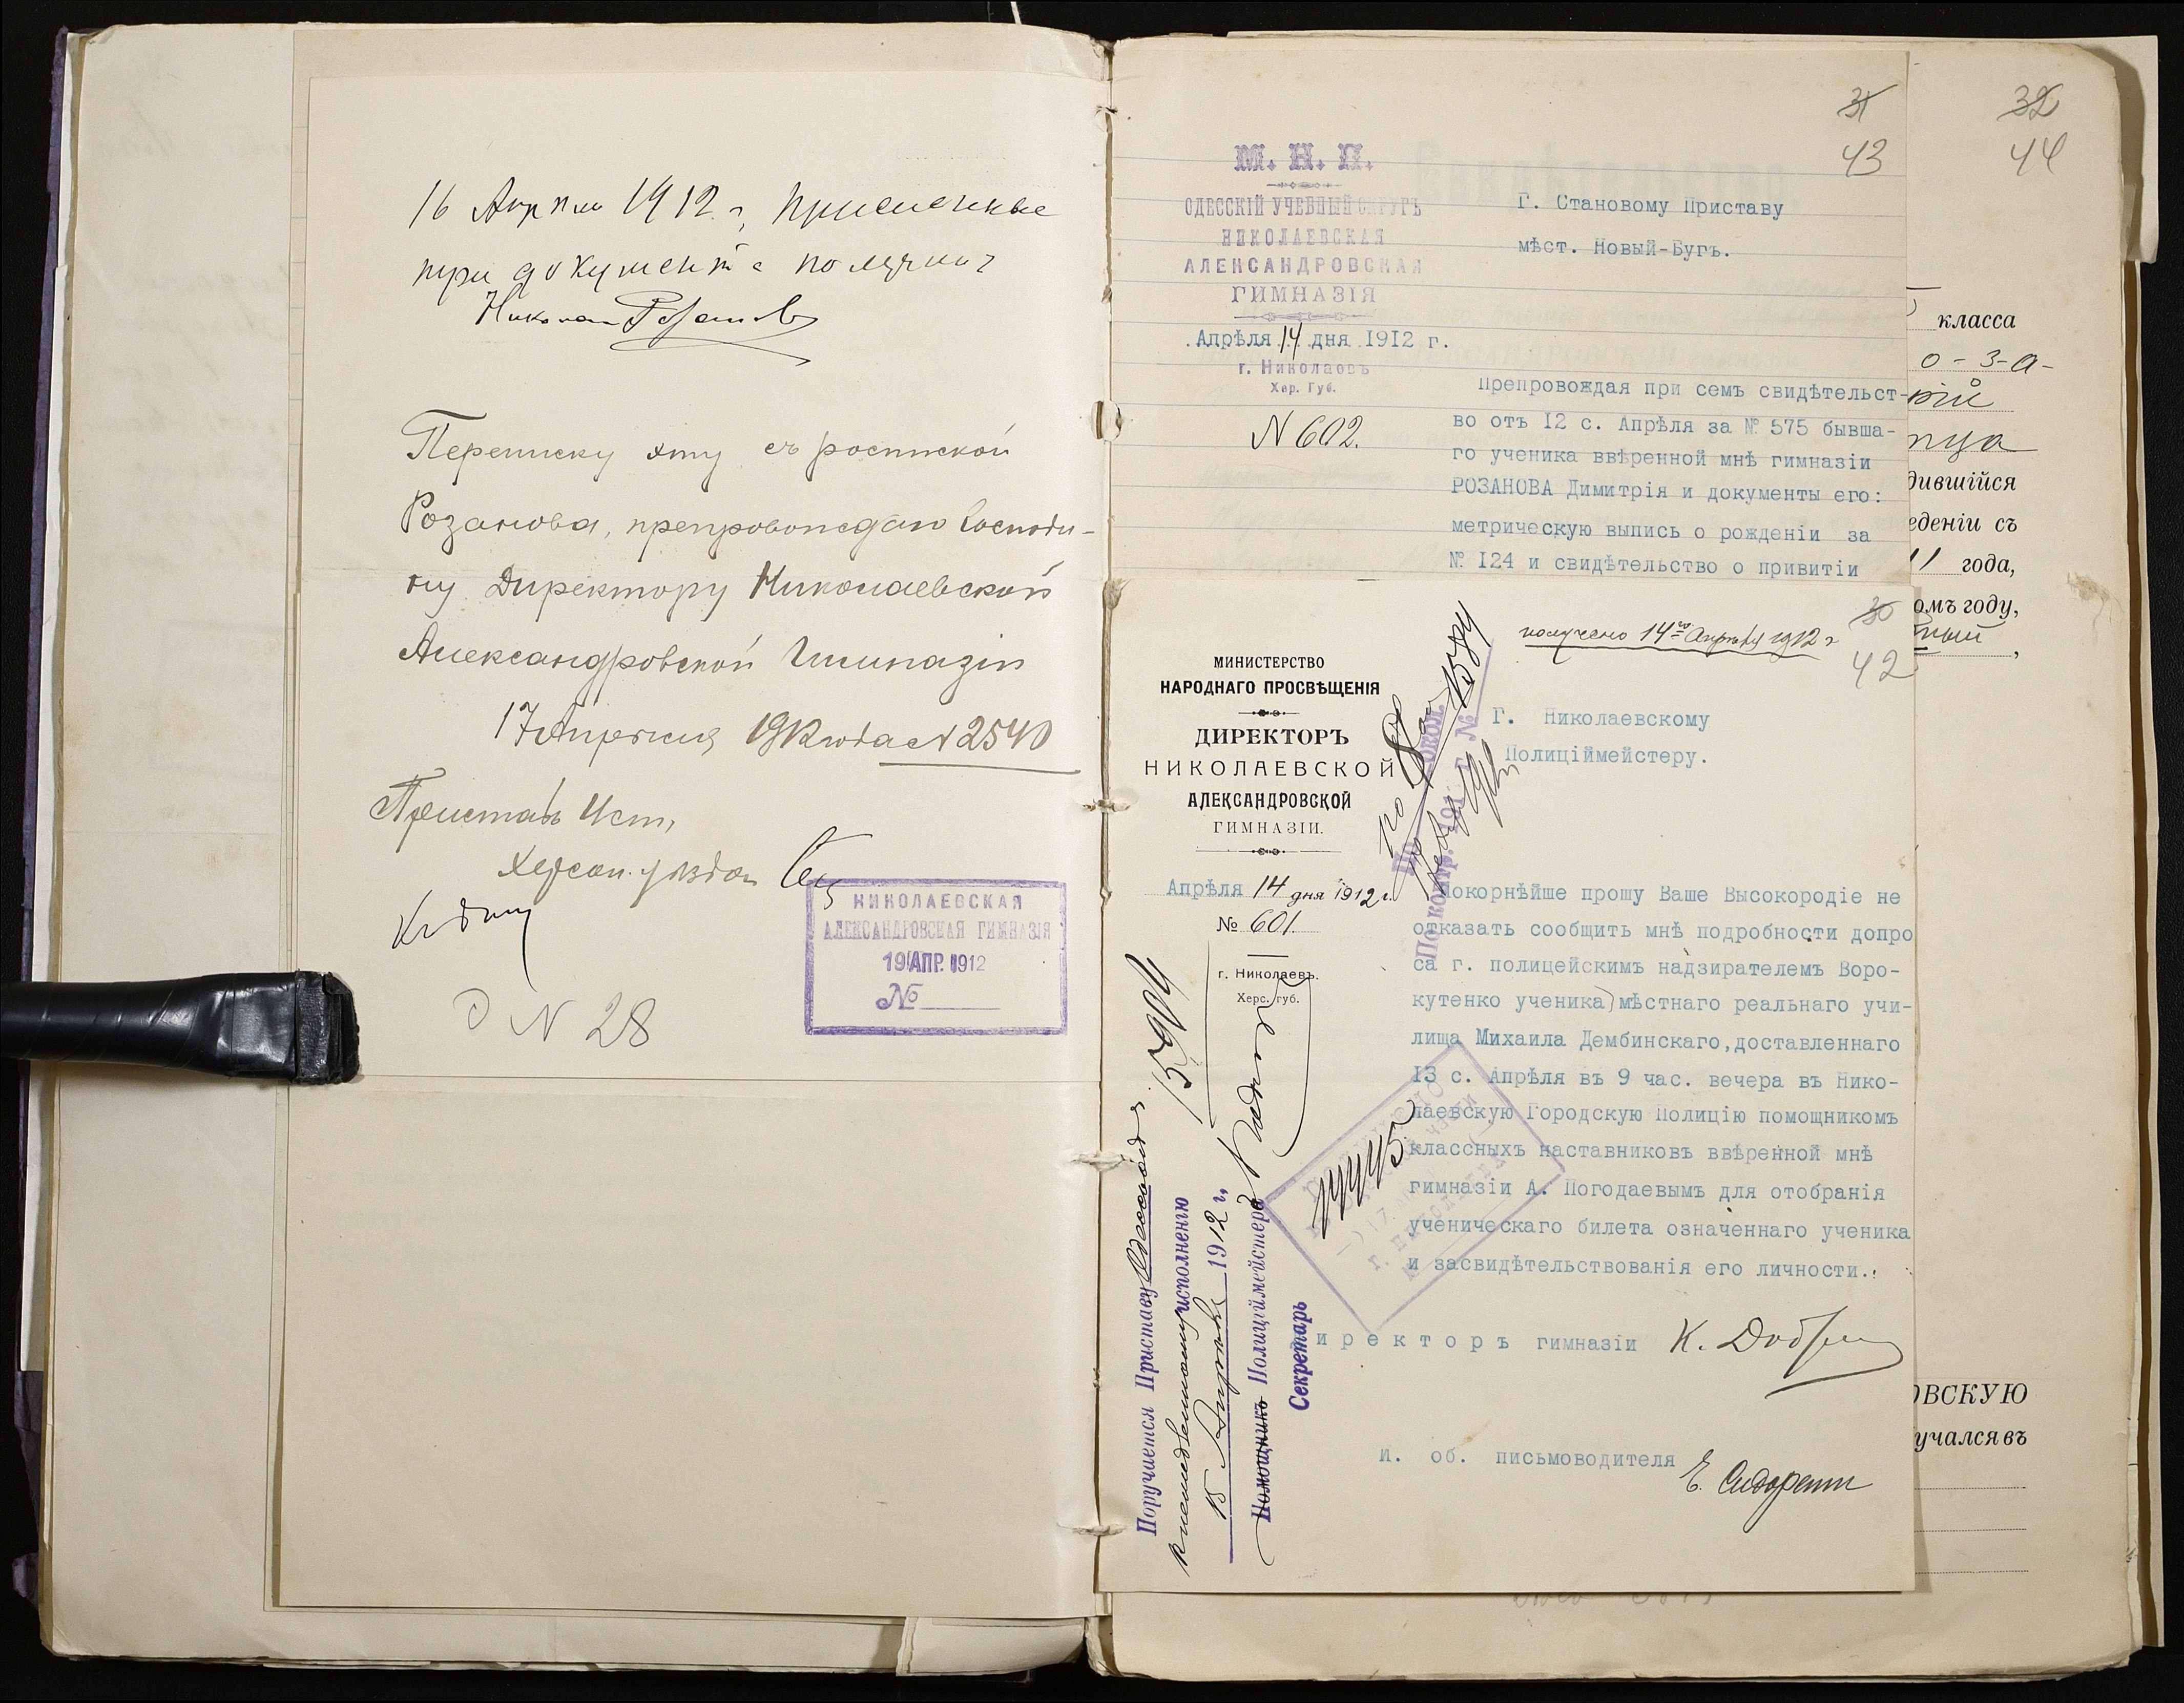 16 Апреля 1912 г, присланные
три документа получилъ
Николай Розановъ
Переписку эту съ роспиской
Розанова, препровождаю Господи-
ну Директору Николаевской
Александровской Гимназіи
17 Апреля 1912 года N 2540
Приставъ
Херсон. уѣзда
НИКОЛАЕВСКАЯ
АЛЕКСАНДРОВСКАЯ ГИМНАЗІЯ
19 АПР. 1912
№
N 28
31
43
32
44
М. Н. П.
ОДЕССКІЙ УЧЕБНЫЙ ОКРУГЪ
НИКОЛАЕВСКАЯ
АЛЕКСАНДРОВСКАЯ
ГИМНАЗІЯ
Апрѣля 14 дня 1912 г.
г. Николаевъ
Хер. Губ.
N 602.
Г. Становому Приставу
мѣст. Новый-Бугъ.
Препровождая при семъ свидѣтельст-
во отъ I2 с. Апрѣля за № 575 бывша-
го ученика ввѣренной мнѣ гимназіи
РОЗАНОВА Димитрія и документы его:
метрическую выпись о рожденіи за
№ I24 и свидѣтельство о привитіи
класса
о-з-а-
дившійся
еденіи съ
11 года,
омъ году,
ОВСКУЮ
учался въ
30
42
получено 14го Апрѣля 1912 г
МИНИСТЕРСТВО
НАРОДНАГО ПРОСВѢЩЕНІЯ
ДИРЕКТОРЪ
НИКОЛАЕВСКОЙ
АЛЕКСАНДРОВСКОЙ
ГИМНАЗІИ.
Апрѣля 14 дня 1912 г.
№ 601.
г. Николаевъ.
Херс. губ.
Г. Николаевскому
Полиціймейстеру.
Покорнѣйше прошу Ваше Высокородіе не
отказать сообщить мнѣ подробности допро
са г. полицейскимъ надзирателемъ Воро-
кутенко ученика мѣстнаго реальнаго учи-
лища Михаила Дембинскаго,доставленнаго
I3 с. Апрѣля въ 9 час. вечера въ Нико-
лаевскую Городскую Полицію помощникомъ
классныхъ наставниковъ ввѣренной мнѣ
гимназіи А. Погодаевымъ для отобранія
ученическаго билета означеннаго ученика
и засвидѣтельствованія его личности.
Директоръ гимназіи
И. об. письмоводителя
Е. Сидоренко
Поручается Приставу
исполненію
15 Апрѣля 1912 г.
Помощникъ Полиціймейстера
Секретарь